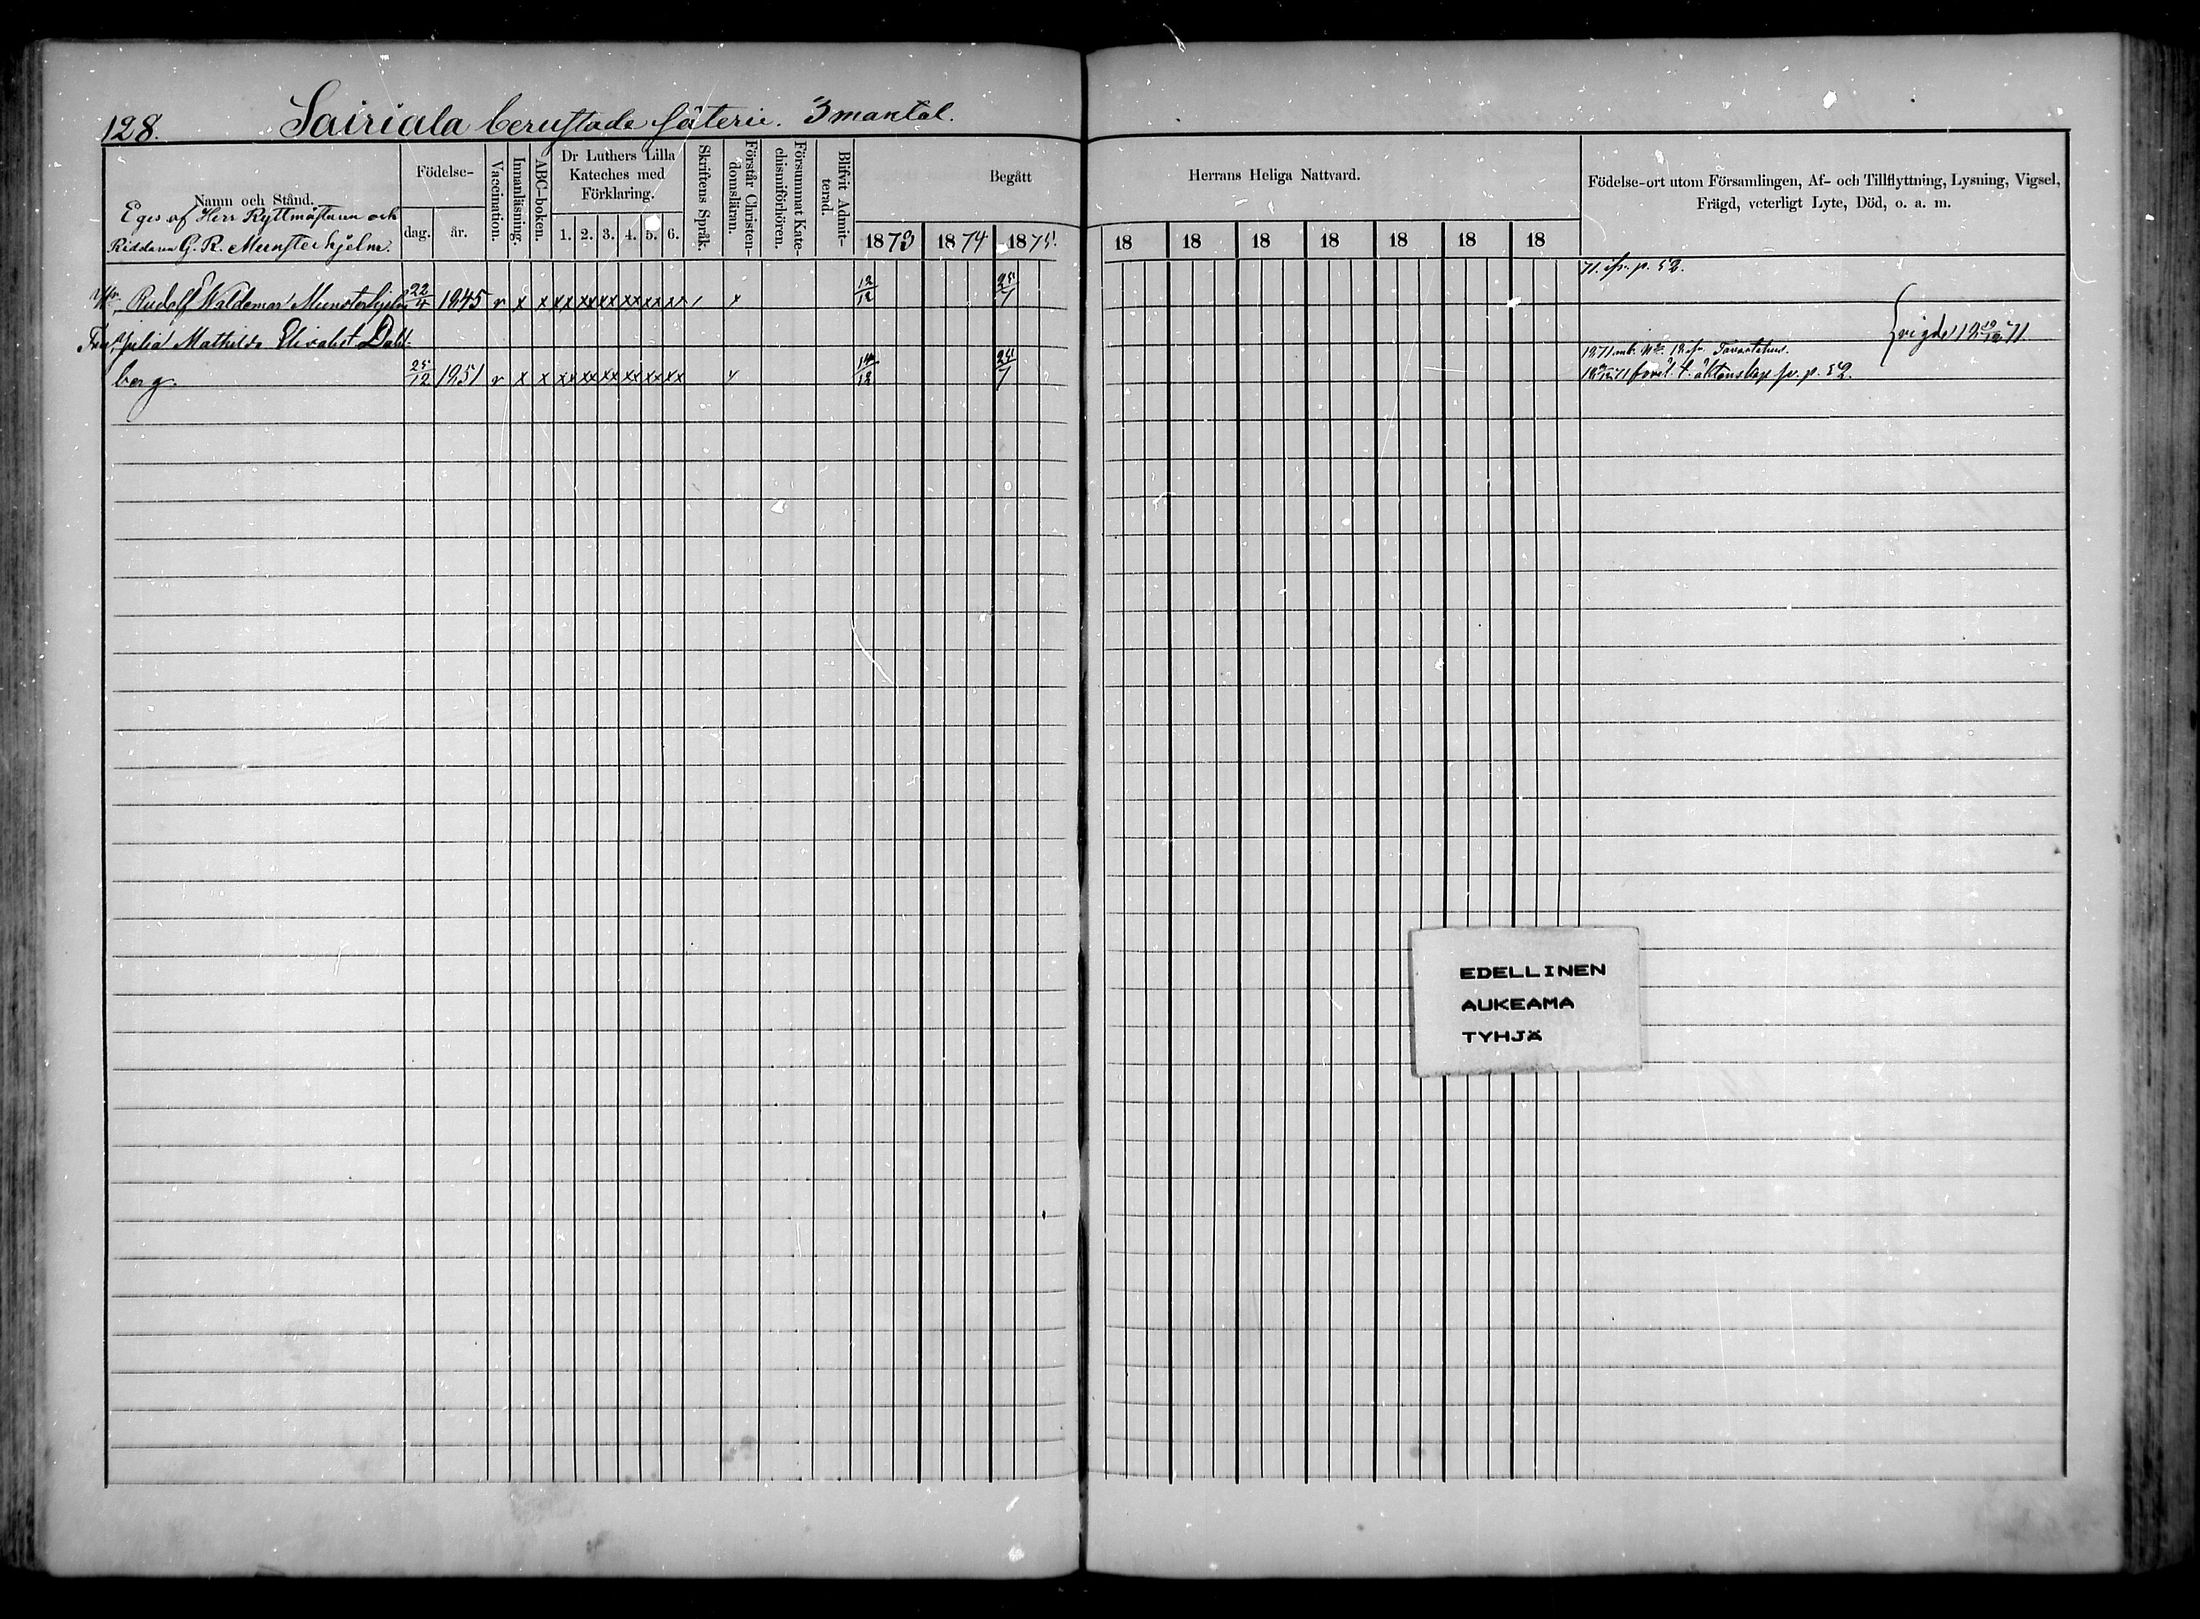 128. Sairiala berustade säterie. 3 mantal.
Namn och Stånd.
Eges af Herr Ryttmästaren och
Riddaren G. R. Munsterhjelm.
Födelse-
dag. år.
Vaccination.
Innanläsning.
ABC-boken.
Dr Luthers Lilla
Kateches med
Förklaring.
1. 2. 3. 4. 5. 6.
Skriftens Språk.
Förstår Christen-
domsläran.
Försummat Kate-
chismiförhören.
Blifvit Admit-
terad.
Begått
Herrans Heliga Nattvard.
1873 1874 1875.
18 18 18 18 18 18 18
Födelse-ort utom Församlingen, Af- och Tillflyttning, Lysning, Vigsel,
Frägd, veterligt Lyte, Död, o. a. m.
71. ifr. p. 52.
Rudolf Waldemar Munsterhjelm 22/4 1845 v x x xx xx xx xx xx xx / x 12/12 25/7
Julia Mathilda Elisabet Dahl-
vigde 18 19/12 71.
berg. 25/12 1851 v x x xx xx xx xx xx xx x 25/7
1871 Tavastehus.
äktenskap fr. p. 52.
EDELLINEN
AUKEAMA
TYHJÄ